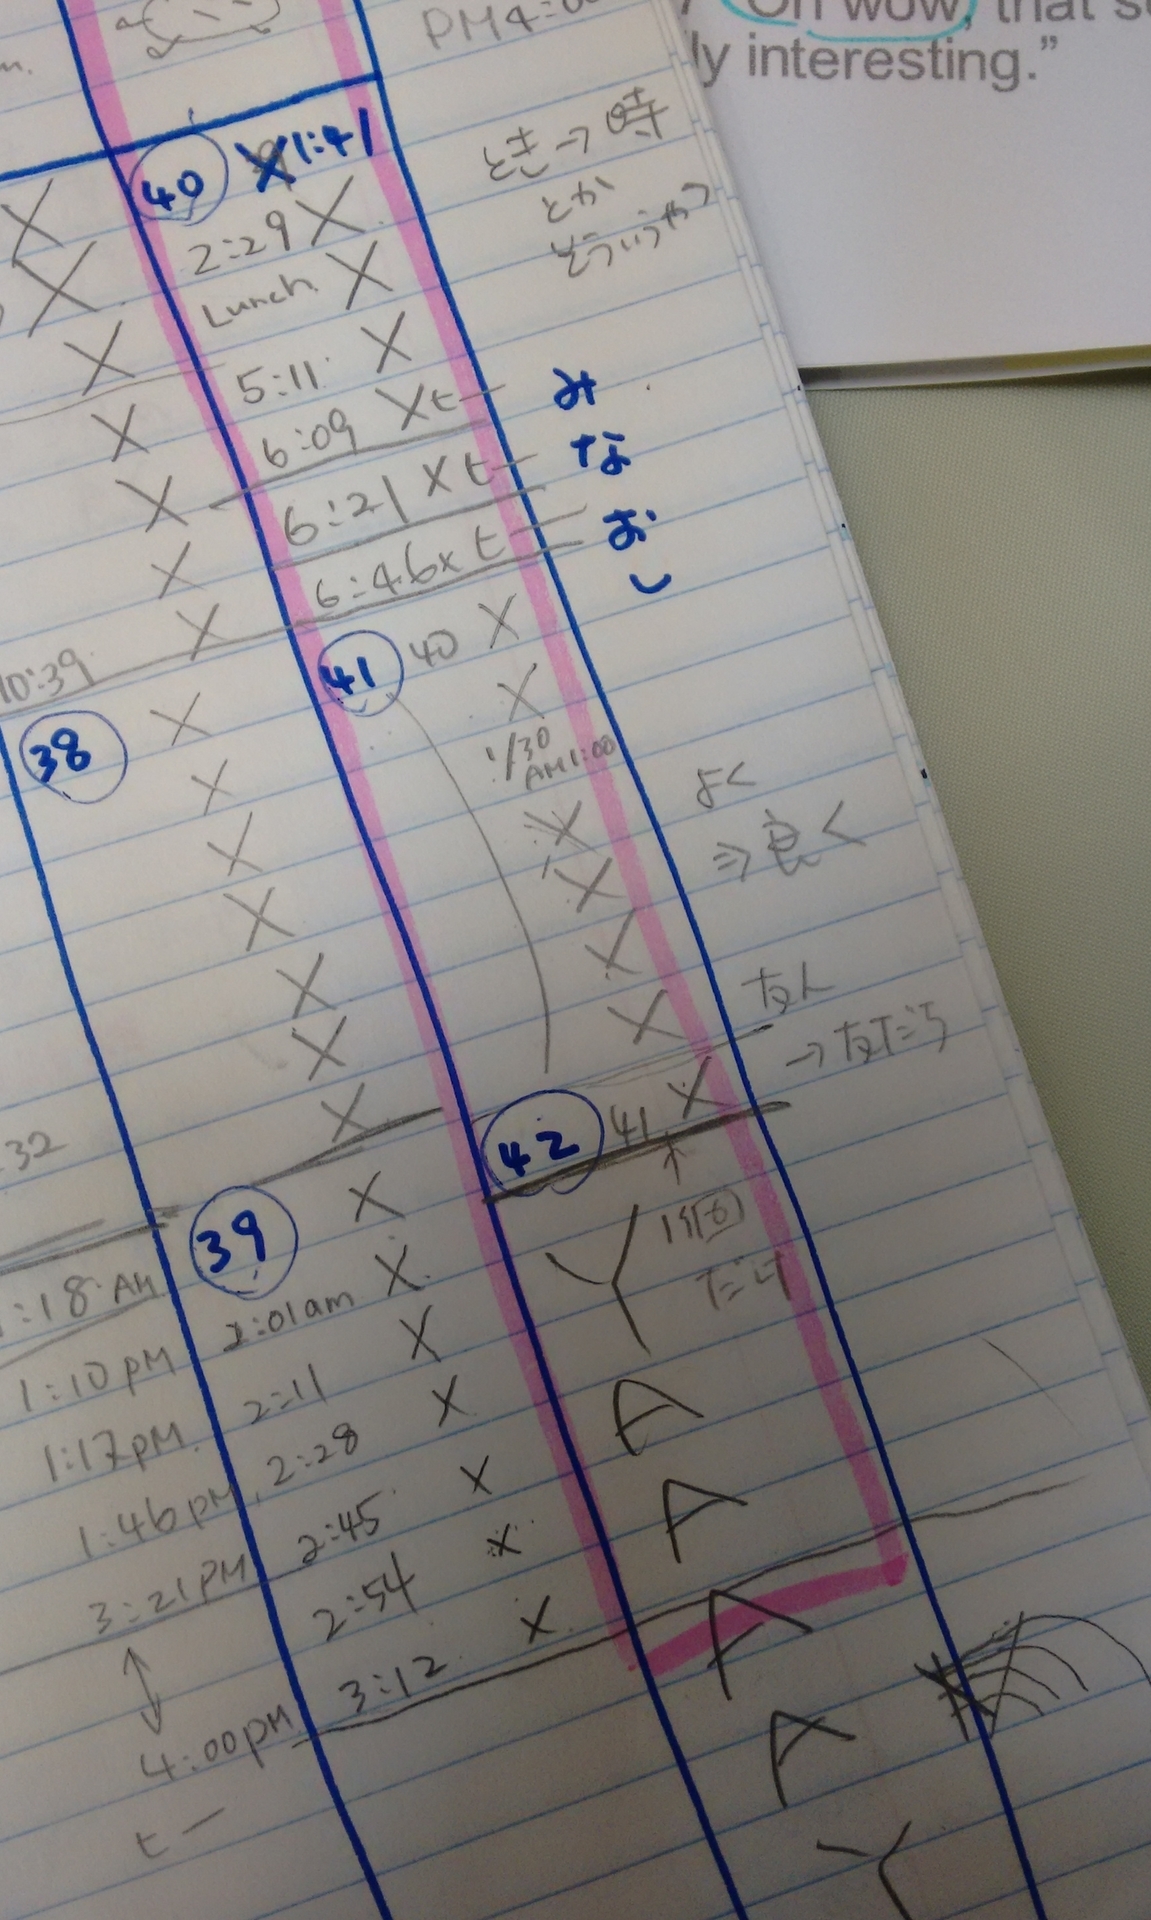 PM4:00
"Oh wow, that s
ly interesting."
40 X 1:41
2:29 X
Lunch X
5:11 X
6:09 X t-
6:21 X t-
6:46 x t-
41 40 X
X
1/30
AM 1:00
X
X
X
X
42 41 X
↑
Y
だけ
A
A
A
A
Y
とき→時
とか
そういうやつ
み
な
お
し
よく
⇒良く
友人
→友だち
X
X
X
X
X
X
X
10:39
38 X
X
X
X
X
X
X
:32
39 X
2:01am X
2:11 X
2:28 X
2:45 X
2:54 X
3:12 X
:18 AM
1:10 PM
1:17PM.
1:46 PM
3:21PM
4:00PM
t-